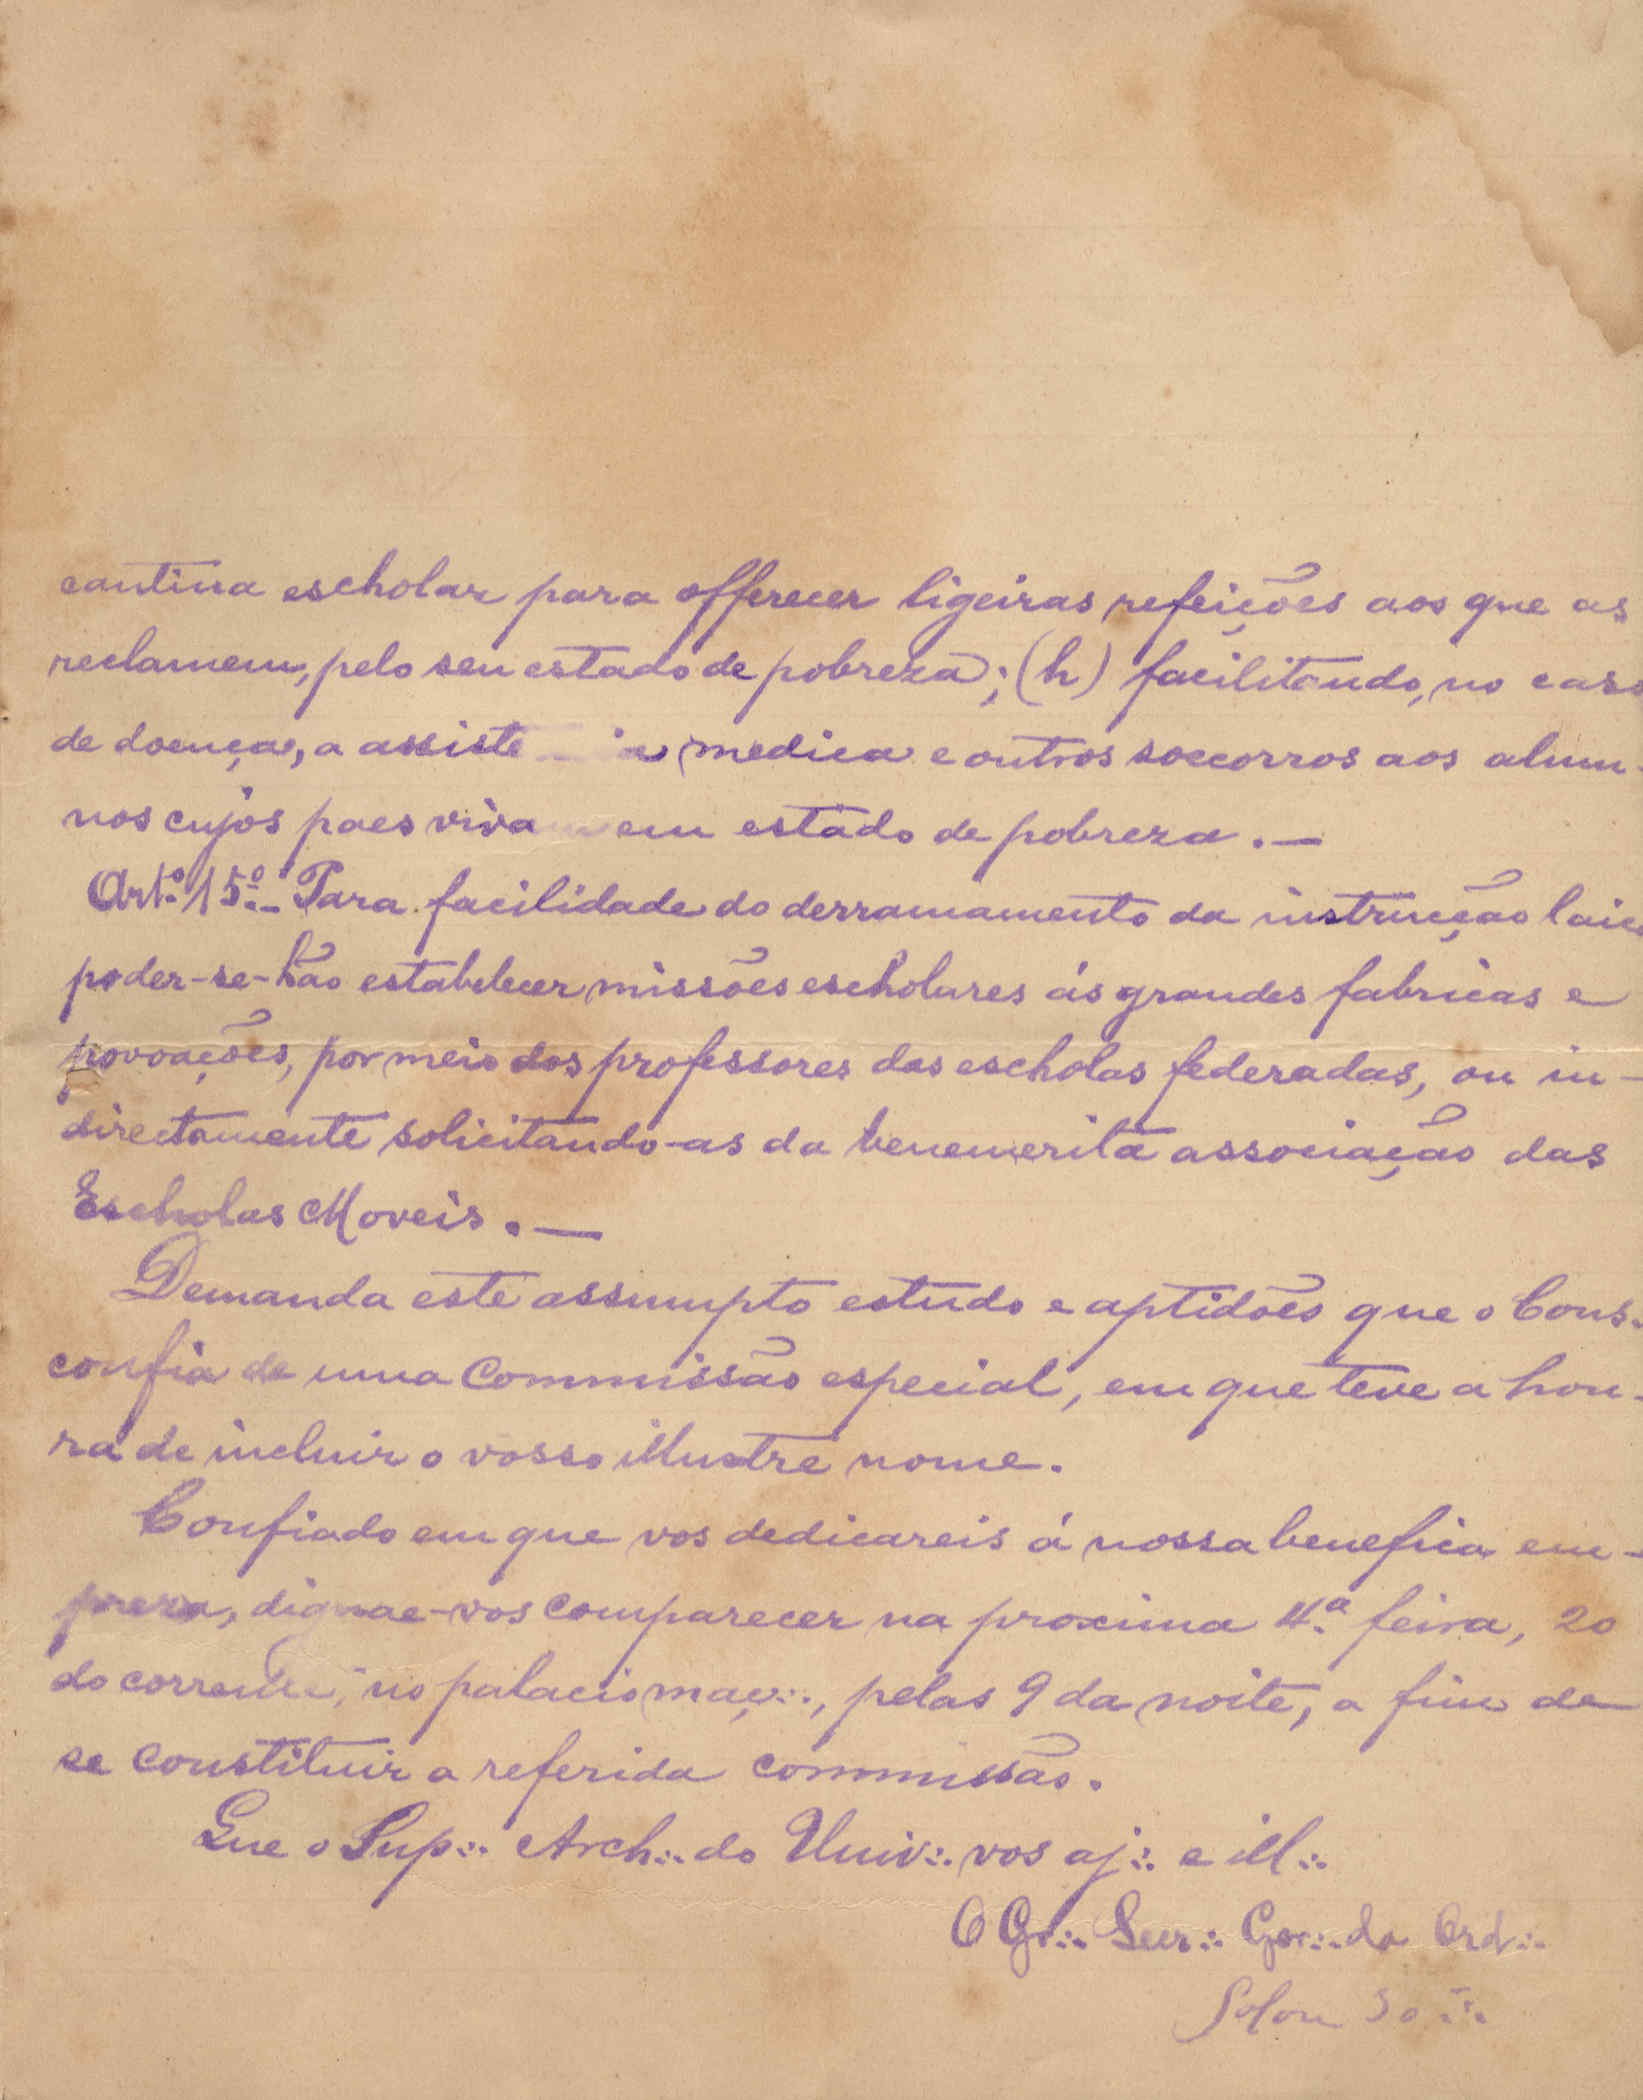 cantina escholar para offerecer ligeiras refeições aos que as
reclamem, pelo seu estado de pobreza; (h) facilitando, no caso
de doença, a assiste ia medica e outros soccorros aos alum-
nos cujos paes vivam em estado de pobreza. —
Art.º 15º.— Para facilidade do derramamento da instrucção laica
poder-se-hão estabelecer missões escholares ás grandes fabricas e
povoações, por meio dos professores das escholas federadas, ou in-
directamente solicitando-as da benemerita associação das
Escholas Moveis. —
Demanda este assumpto estudo e aptidões que o Cons.
confia de uma Commissão especial, em que teve a hon-
ra de incluir o vosso illustre nome.
Confiado em que vos dedicareis á nossa benefica em-
preza, dignae-vos comparecer na proxima 4.ª feira, 20
do corrente, no palacio maç∴, pelas 9 da noite, a fim de
se constituir a referida commissão.
Que o Sup∴ Arch∴ do Univ∴ vos aj∴ e ill∴
O Gr∴ Secr∴ Ger∴ da Ord∴
Solon